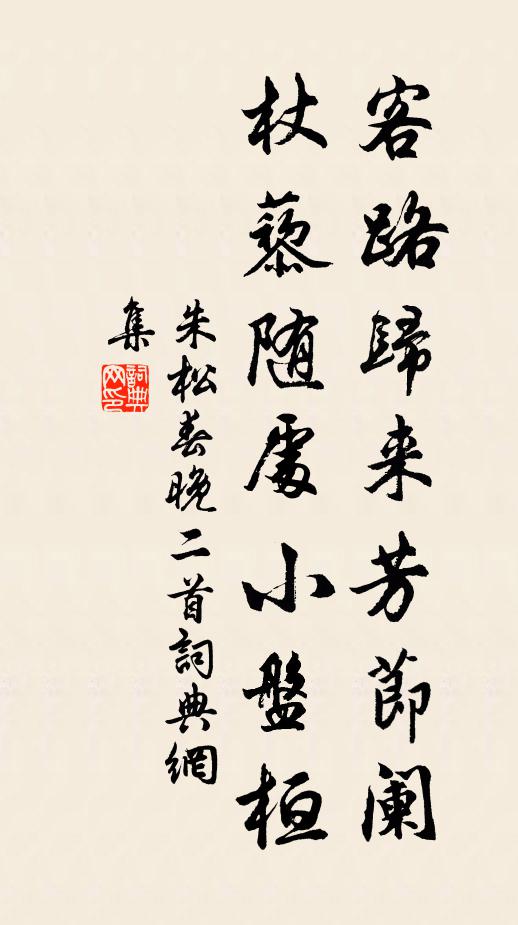 客路歸来芳節阑
杖藜随處小盤桓
朱松春晚二首詞典網
集
詞典
网印